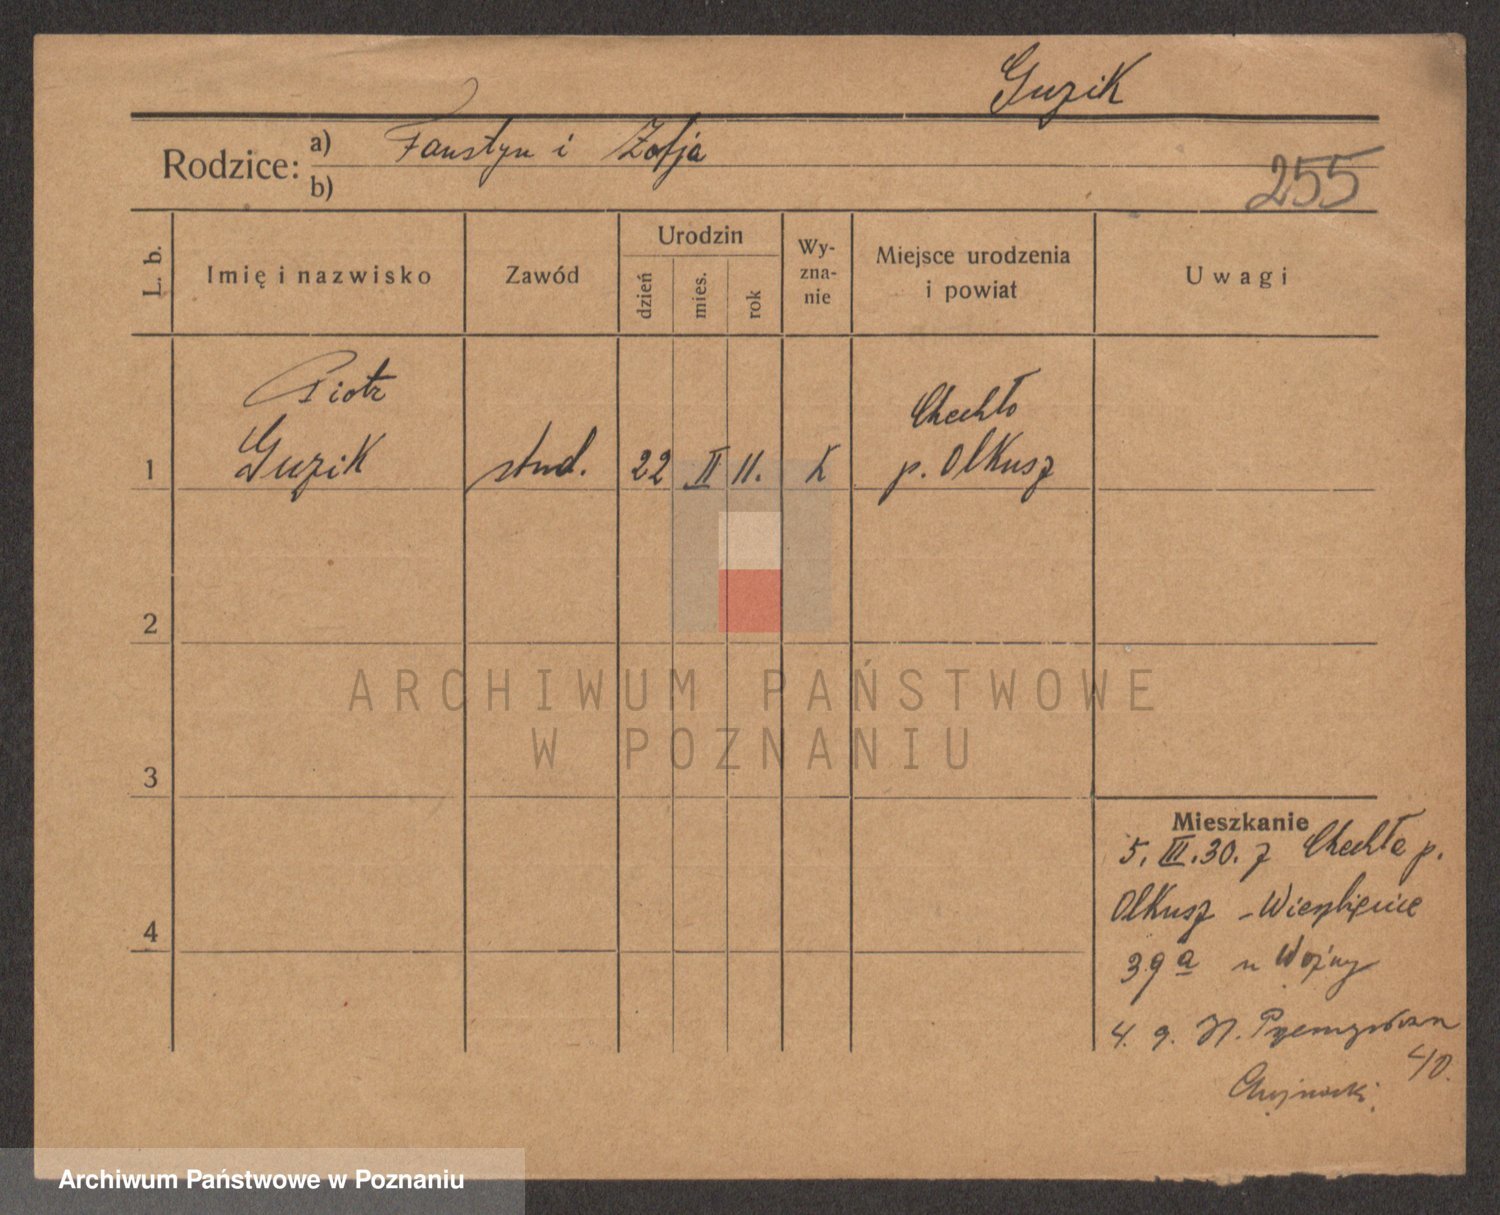 Guzik
Rodzice: a) Faustyn i Zofja
b)
255
L. b.
Imię i nazwisko
Zawód
Urodzin
dzień
mies.
rok
Wy-
zna-
nie
Miejsce urodzenia
i powiat
Uwagi
Piotr
Chechło
1 Guzik stud. 22 II 11. k p. Olkusz
2
ARCHIWUM PAŃSTWOWE
W POZNANIU
3
Mieszkanie
5. III. 30. z Chechła p.
Olkusz - Wierzbięcice
39a u Wojny
4
4. 9. Przemysłowa
40.
Archiwum Państwowe w Poznaniu